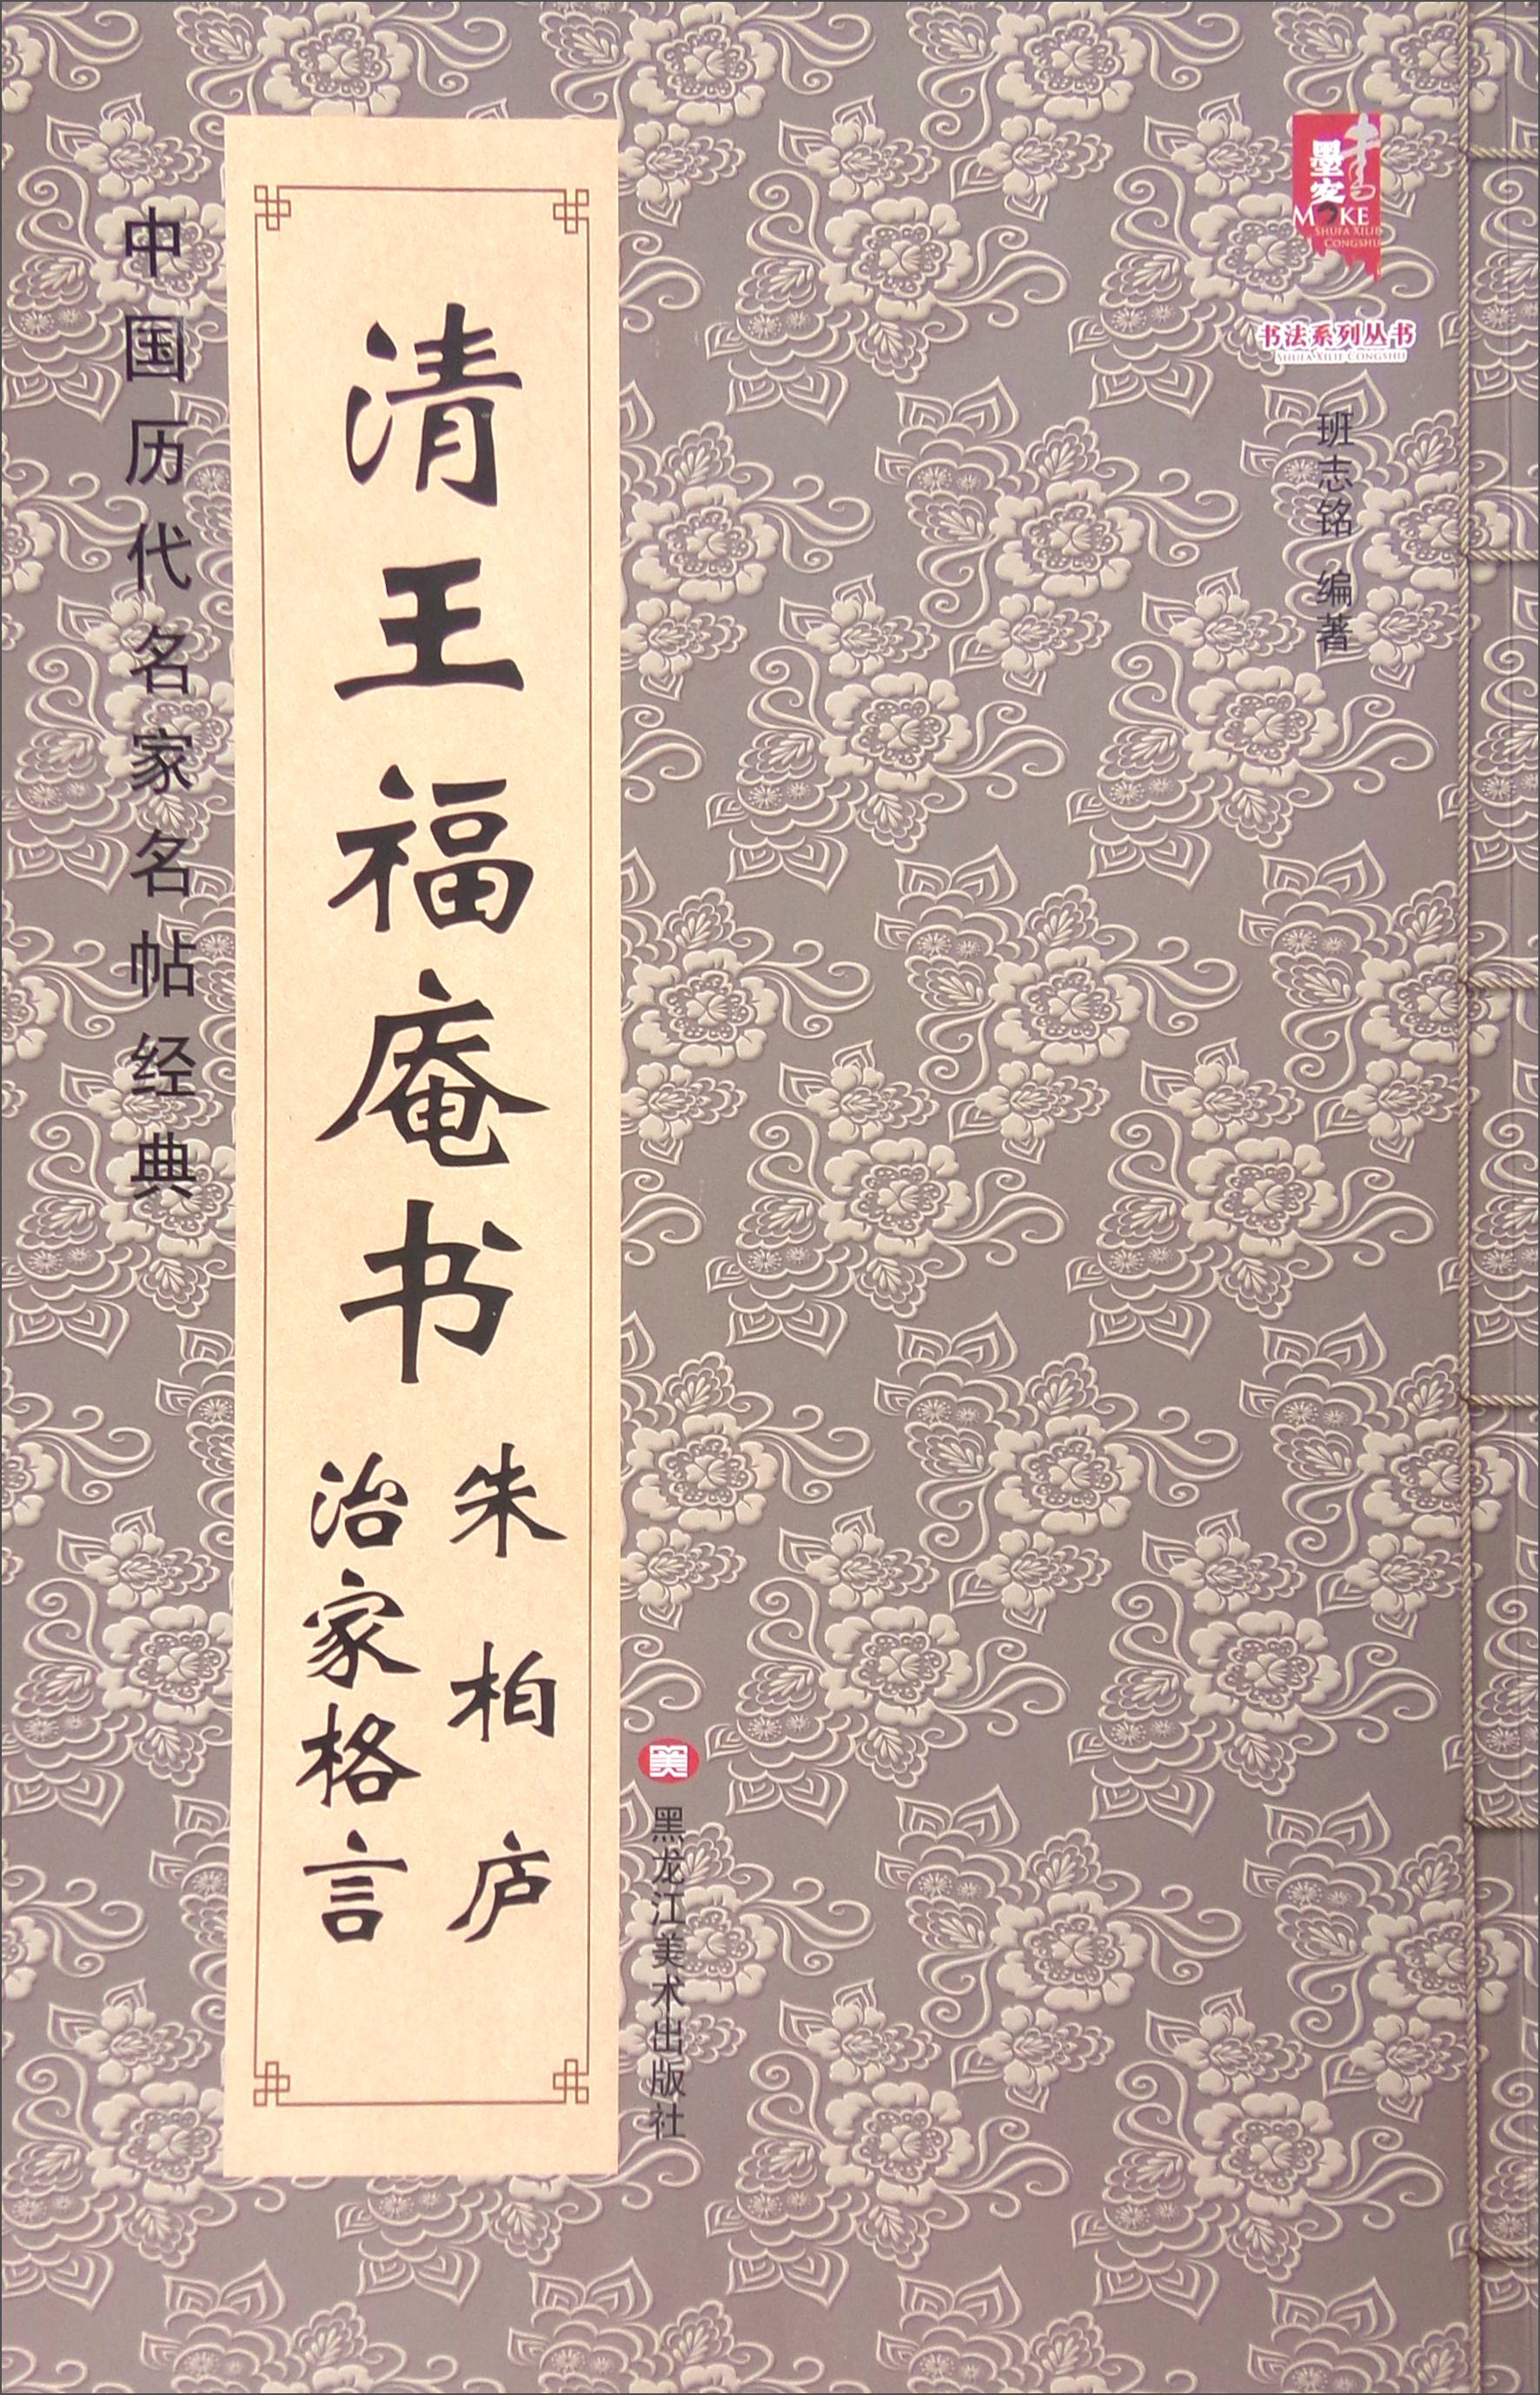 中国历代名家名帖经典
清王福庵书
朱柏庐
治家格言
墨客
书
MOKE
SHUFA XILIE
CONGSHU
书法系列丛书
SHUFA XILIE CONGSHU
班志铭 编著
美
黑龙江美术出版社